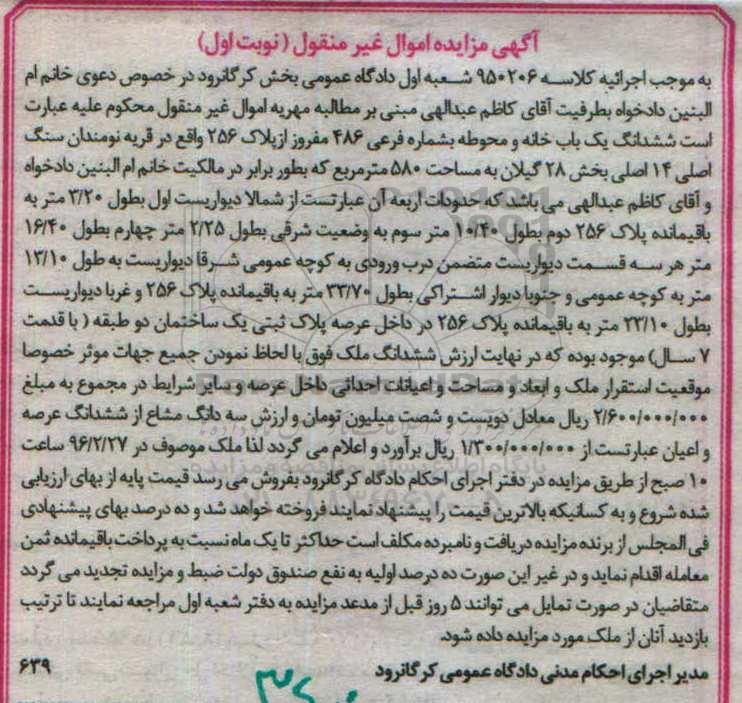 آگهی مزایده اموال غیر منقول (نوبت اول)
به موجب اجرائیه کلاسه ۹۵۰۲۰۶ شعبه اول دادگاه عمومی بخش کرگانرود در خصوص دعوی خانم ام
البنین دادخواه بطرفیت آقای کاظم عبدالهی مبنی بر مطالبه مهریه اموال غیر منقول محکوم علیه عبارت
است ششدانگ یک باب خانه و محوطه بشماره فرعی ۴۸۶ مفروز ازپلاک ۲۵۶ واقع در قریه نومندان سنگ
اصلی ۱۴ اصلی بخش ۲۸ گیلان به مساحت ۵۸۰ مترمربع که بطور برابر در مالکیت خانم ام البنین دادخواه
و آقای کاظم عبدالهی می باشد که حدودات اربعه آن عبارتست از شمالا دیواریست اول بطول ۳/۲۰ متر به
باقیمانده پلاک ۲۵۶ دوم بطول ۱۰/۴۰ متر سوم به وضعیت شرقی بطول ۲/۲۵ متر چهارم بطول ۱۶/۴۰
متر هر سه قسمت دیواریست متضمن درب ورودی به کوچه عمومی شرقا دیواریست به طول ۱۳/۱۰
متر به کوچه عمومی و جنوبا دیوار اشتراکی بطول ۳۳/۷۰ متر به باقیمانده پلاک ۲۵۶ و غربا دیواریست
بطول ۲۳/۱۰ متر به باقیمانده پلاک ۲۵۶ در داخل عرصه پلاک ثبتی یک ساختمان دو طبقه ( با قدمت
۷ سال) موجود بوده که در نهایت ارزش ششدانگ ملک فوق با لحاظ نمودن جمیع جهات موثر خصوصا
موقعیت استقرار ملک و ابعاد و مساحت و اعیانات احداثی داخل عرصه و سایر شرایط در مجموع به مبلغ
۲/۶۰۰/۰۰۰/۰۰۰ ریال معادل دویست و شصت میلیون تومان و ارزش سه دانگ مشاع از ششدانگ عرصه
و اعیان عبارتست از ۱/۳۰۰/۰۰۰/۰۰۰ ریال برآورد و اعلام می گردد لذا ملک موصوف در ۹۶/۲/۲۷ ساعت
۱۰ صبح از طریق مزایده در دفتر اجرای احکام دادگاه کرگانرود بفروش می رسد قیمت پایه از بهای ارزیابی
شده شروع و به کسانیکه بالاترین قیمت را پیشنهاد نمایند فروخته خواهد شد و ده درصد بهای پیشنهادی
فی المجلس از برنده مزایده دریافت و نامبرده مکلف است حداکثر تا یک ماه نسبت به پرداخت باقیمانده ثمن
معامله اقدام نماید و در غیر این صورت ده درصد اولیه به نفع صندوق دولت ضبط و مزایده تجدید می گردد
متقاضیان در صورت تمایل می توانند ۵ روز قبل از مدعد مزایده به دفتر شعبه اول مراجعه نمایند تا ترتیب
بازدید آنان از ملک مورد مزایده داده شود.
مدیر اجرای احکام مدنی دادگاه عمومی کرگانرود ۶۳۹